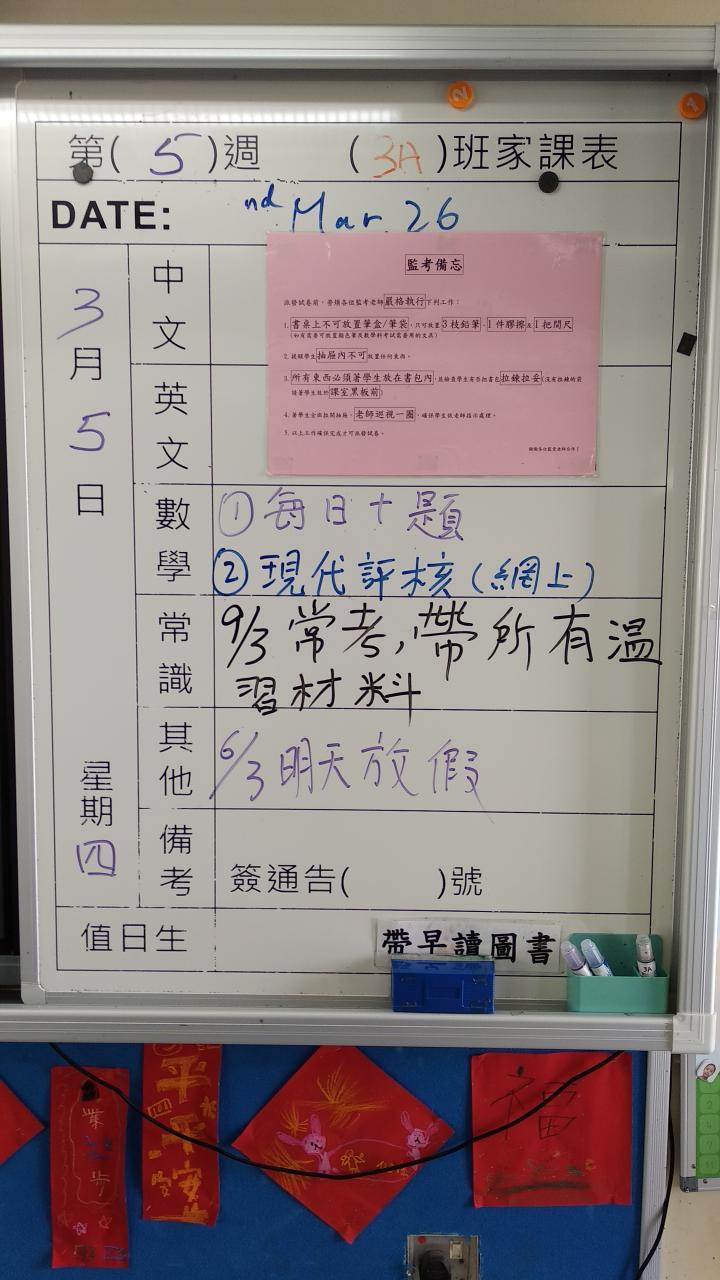 第( 5 )週 ( 3A )班家課表
DATE: nd Mar. 26
3月5日
星期四
中文
監考備忘
派發試卷前，勞煩各位監考老師嚴格執行下列工作：
1. 書桌上不可放置筆盒/筆袋，只可放置3枝鉛筆、1件膠擦及1把間尺
(如有需要可放置顏色筆及數學科考試需要用的文具)
2. 提醒學生抽屜內不可放置任何東西。
3. 所有東西必須著學生放在書包內，並檢查學生有否把書包拉鍊拉妥(沒有拉鍊的袋
請著學生放於課室黑板前)
4. 著學生全班拉開抽屜，老師巡視一圈，確保學生依老師指示處理。
5. 以上工作確保完成才可派發試卷。
英文
數學
①每日十題
②現代評核(網上)
常識
9/3 常考,帶所有溫
習材料
其他
6/3 明天放假
備考
簽通告( )號
值日生
帶早讀圖書
3A
2
1
平平安安
福